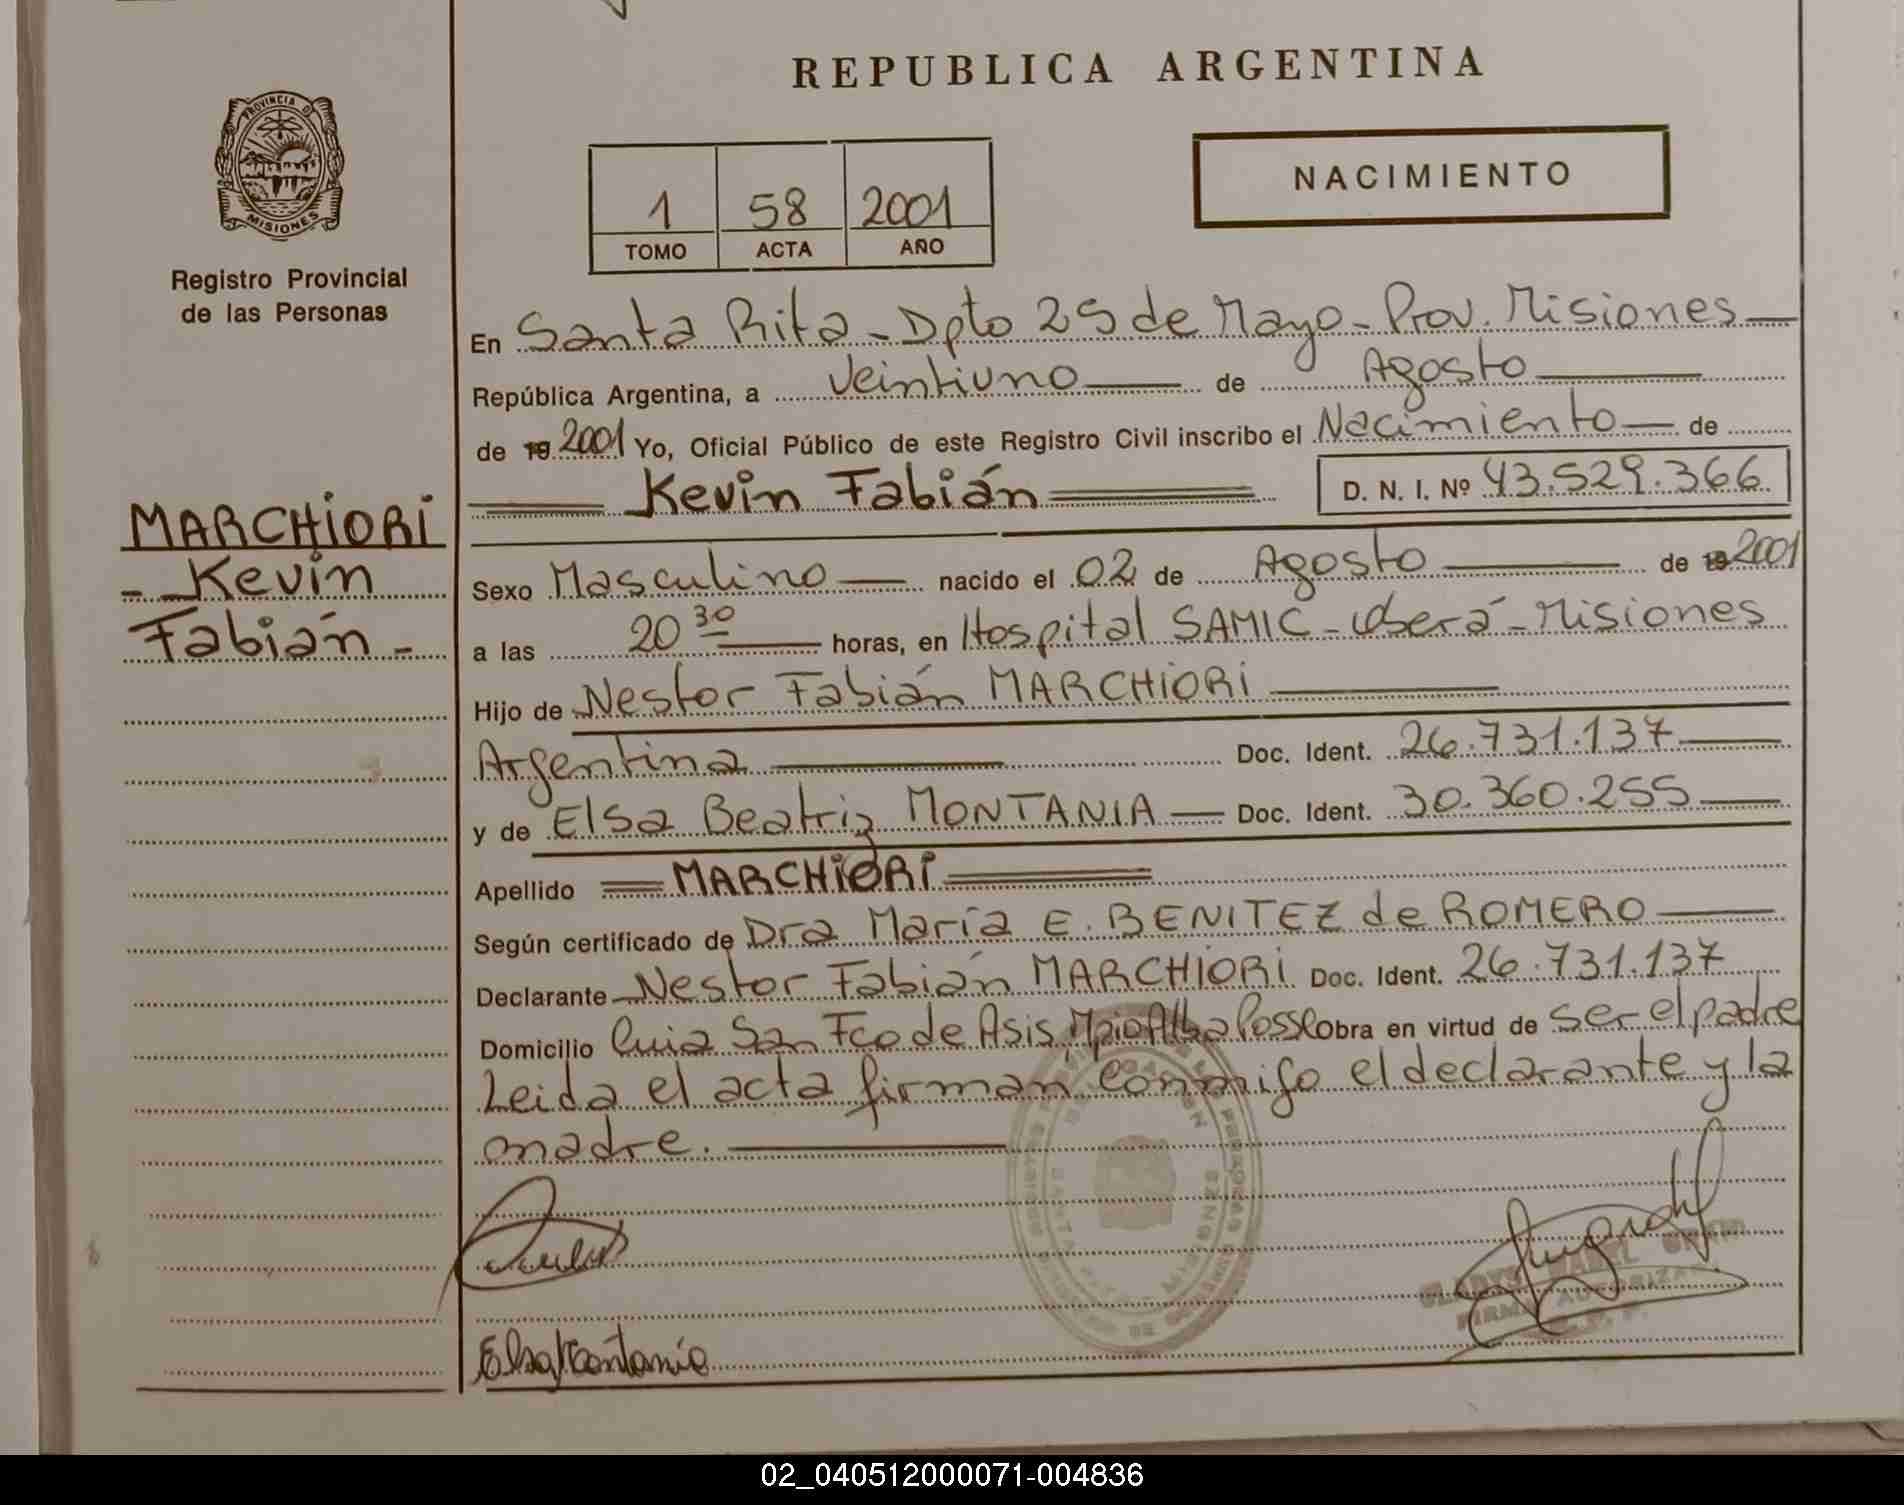 REPUBLICA ARGENTINA
PROVINCIA DE
MISIONES
Registro Provincial
de las Personas
NACIMIENTO
1 58 2001
TOMO ACTA AÑO
En Santa Rita - Dpto 25 de Mayo - Prov. Misiones
República Argentina, a Veintiuno de Agosto
de 19 2001 Yo, Oficial Público de este Registro Civil inscribo el Nacimiento de
Kevin Fabián D. N. I. Nº 43.529.366
MARCHIORI
- Kevin
Fabián -
Sexo Masculino nacido el 02 de Agosto de 19 2001
a las 20 30 horas, en Hospital SAMIC - Oberá - Misiones
Hijo de Nestor Fabián MARCHIORI
Argentina Doc. Ident. 26.731.137
y de Elsa Beatriz MONTANIA Doc. Ident. 30.360.255
Apellido MARCHIORI
Según certificado de Dra María E. BENITEZ de ROMERO
Declarante Nestor Fabián MARCHIORI Doc. Ident. 26.731.137
Domicilio San Fco de Asis, Mpio Alba Posse obra en virtud de ser el padre
Leida el acta firman conmigo el declarante y la
madre.
GLADYS
FIRMA AUTORIZADA
Elsa Montania
02_040512000071-004836